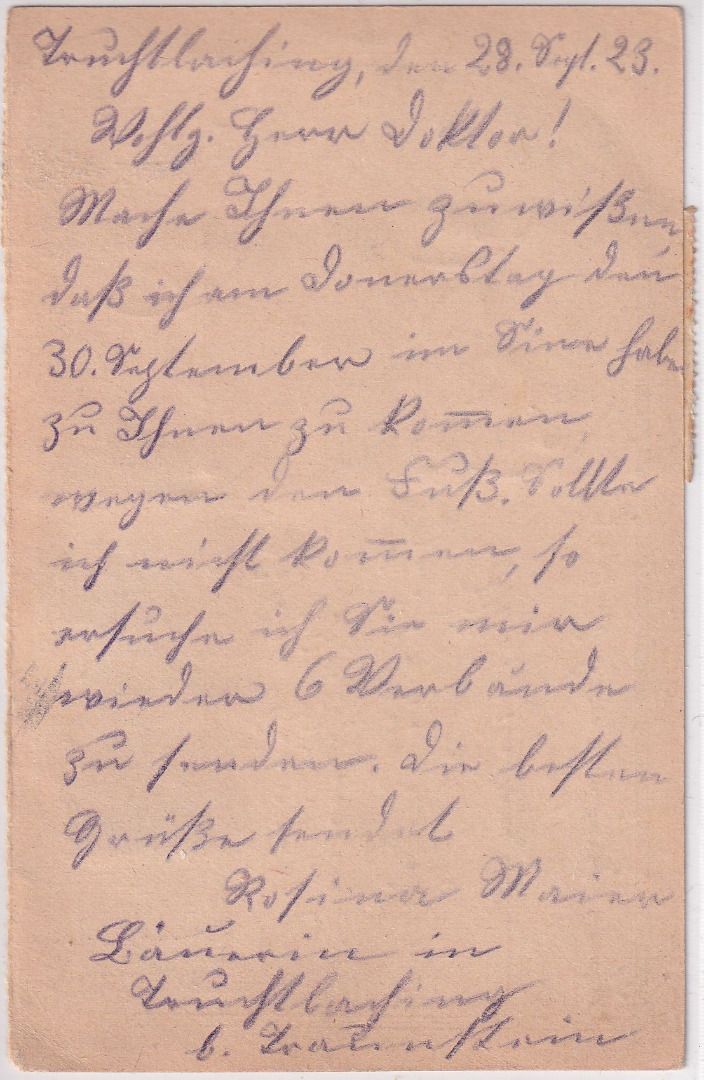 Truchtlaching, den 28. Sept. 23.
Wohlg. Herr Doktor!
Mache Ihnen zuwißen,
daß ich am Donerstag den
30. September im Sine habe
zu Ihnen zu kom̅en,
wegen den Fuß. Sollte
ich nicht kom̅en, so
ersuche ich Sie mir
wieder 6 Verbände
zu senden. Die besten
Grüße sendet
Rosina Maier
Bäuerin in
Truchtlaching
b. Traunstein